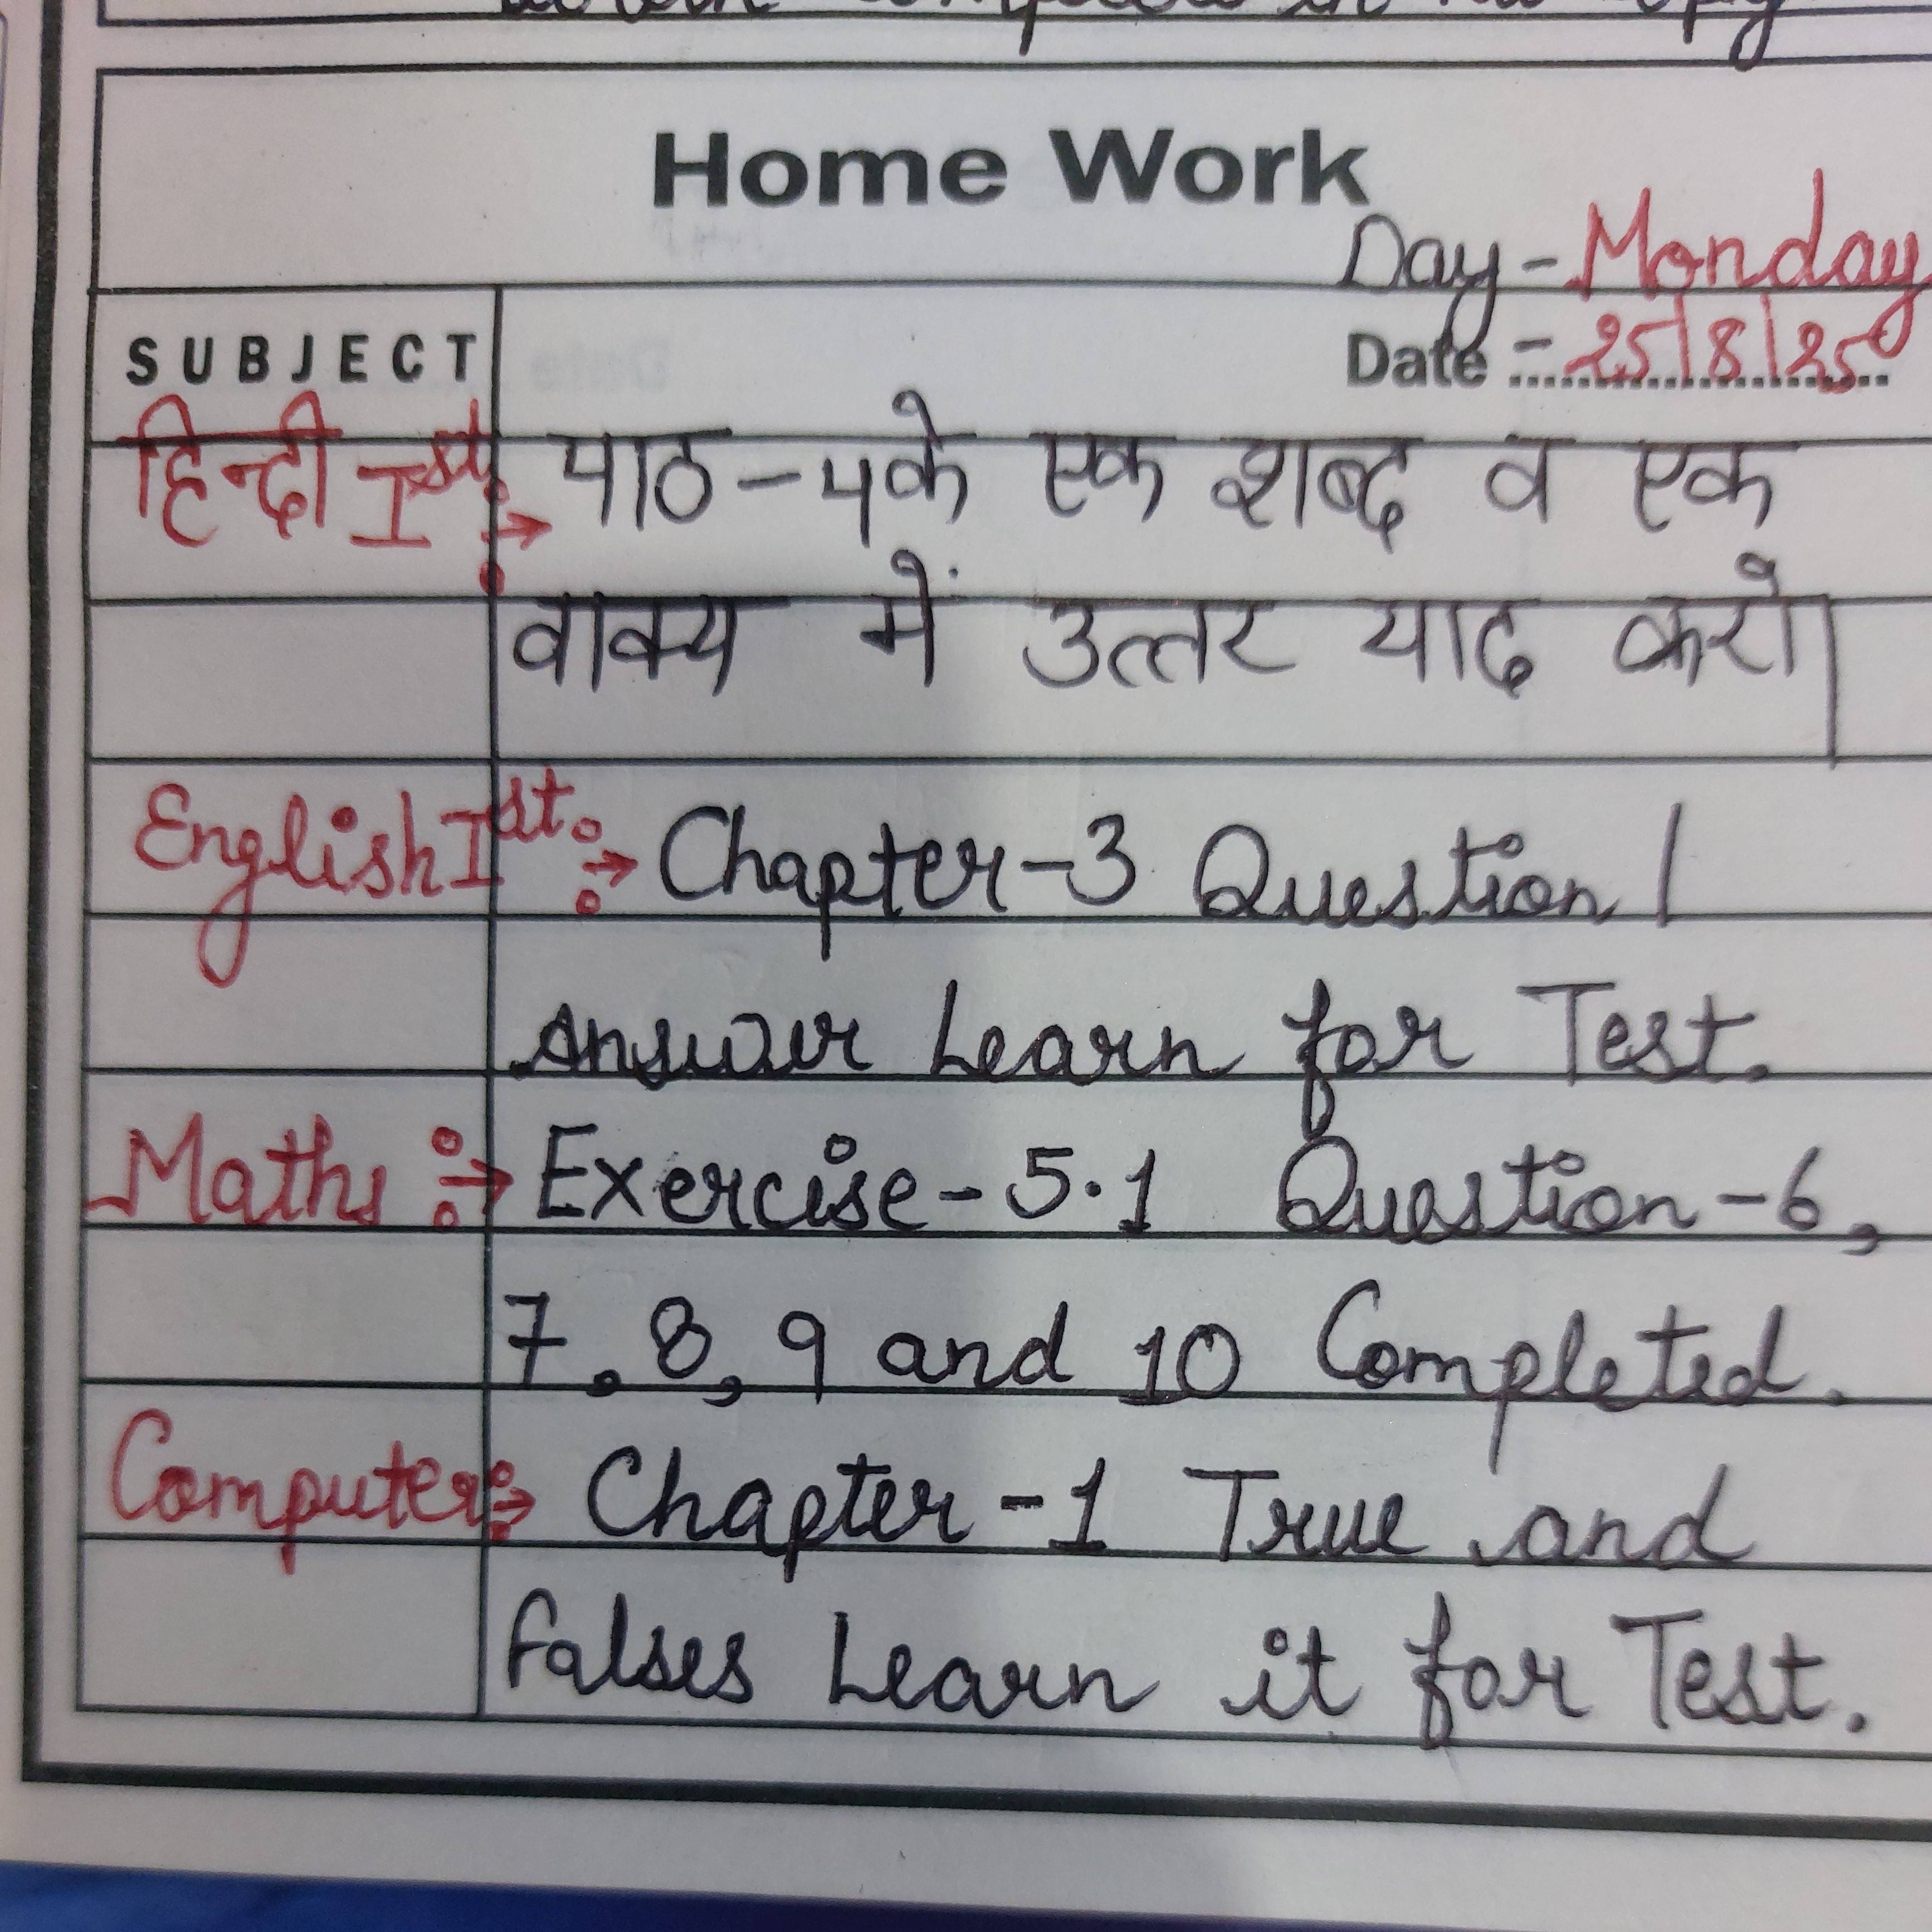 Home Work
Day - Monday
SUBJECT Date - 25/8/25
हिन्दी Ist :→ पाठ - 4 के एक शब्द व एक
वाक्य में उत्तर याद करो।
English Ist :→ Chapter-3 Question /
Answer Learn for Test.
Maths :→ Exercise - 5.1 Question - 6,
7, 8, 9 and 10 Completed.
Computer :→ Chapter - 1 True and
falses Learn it for Test.